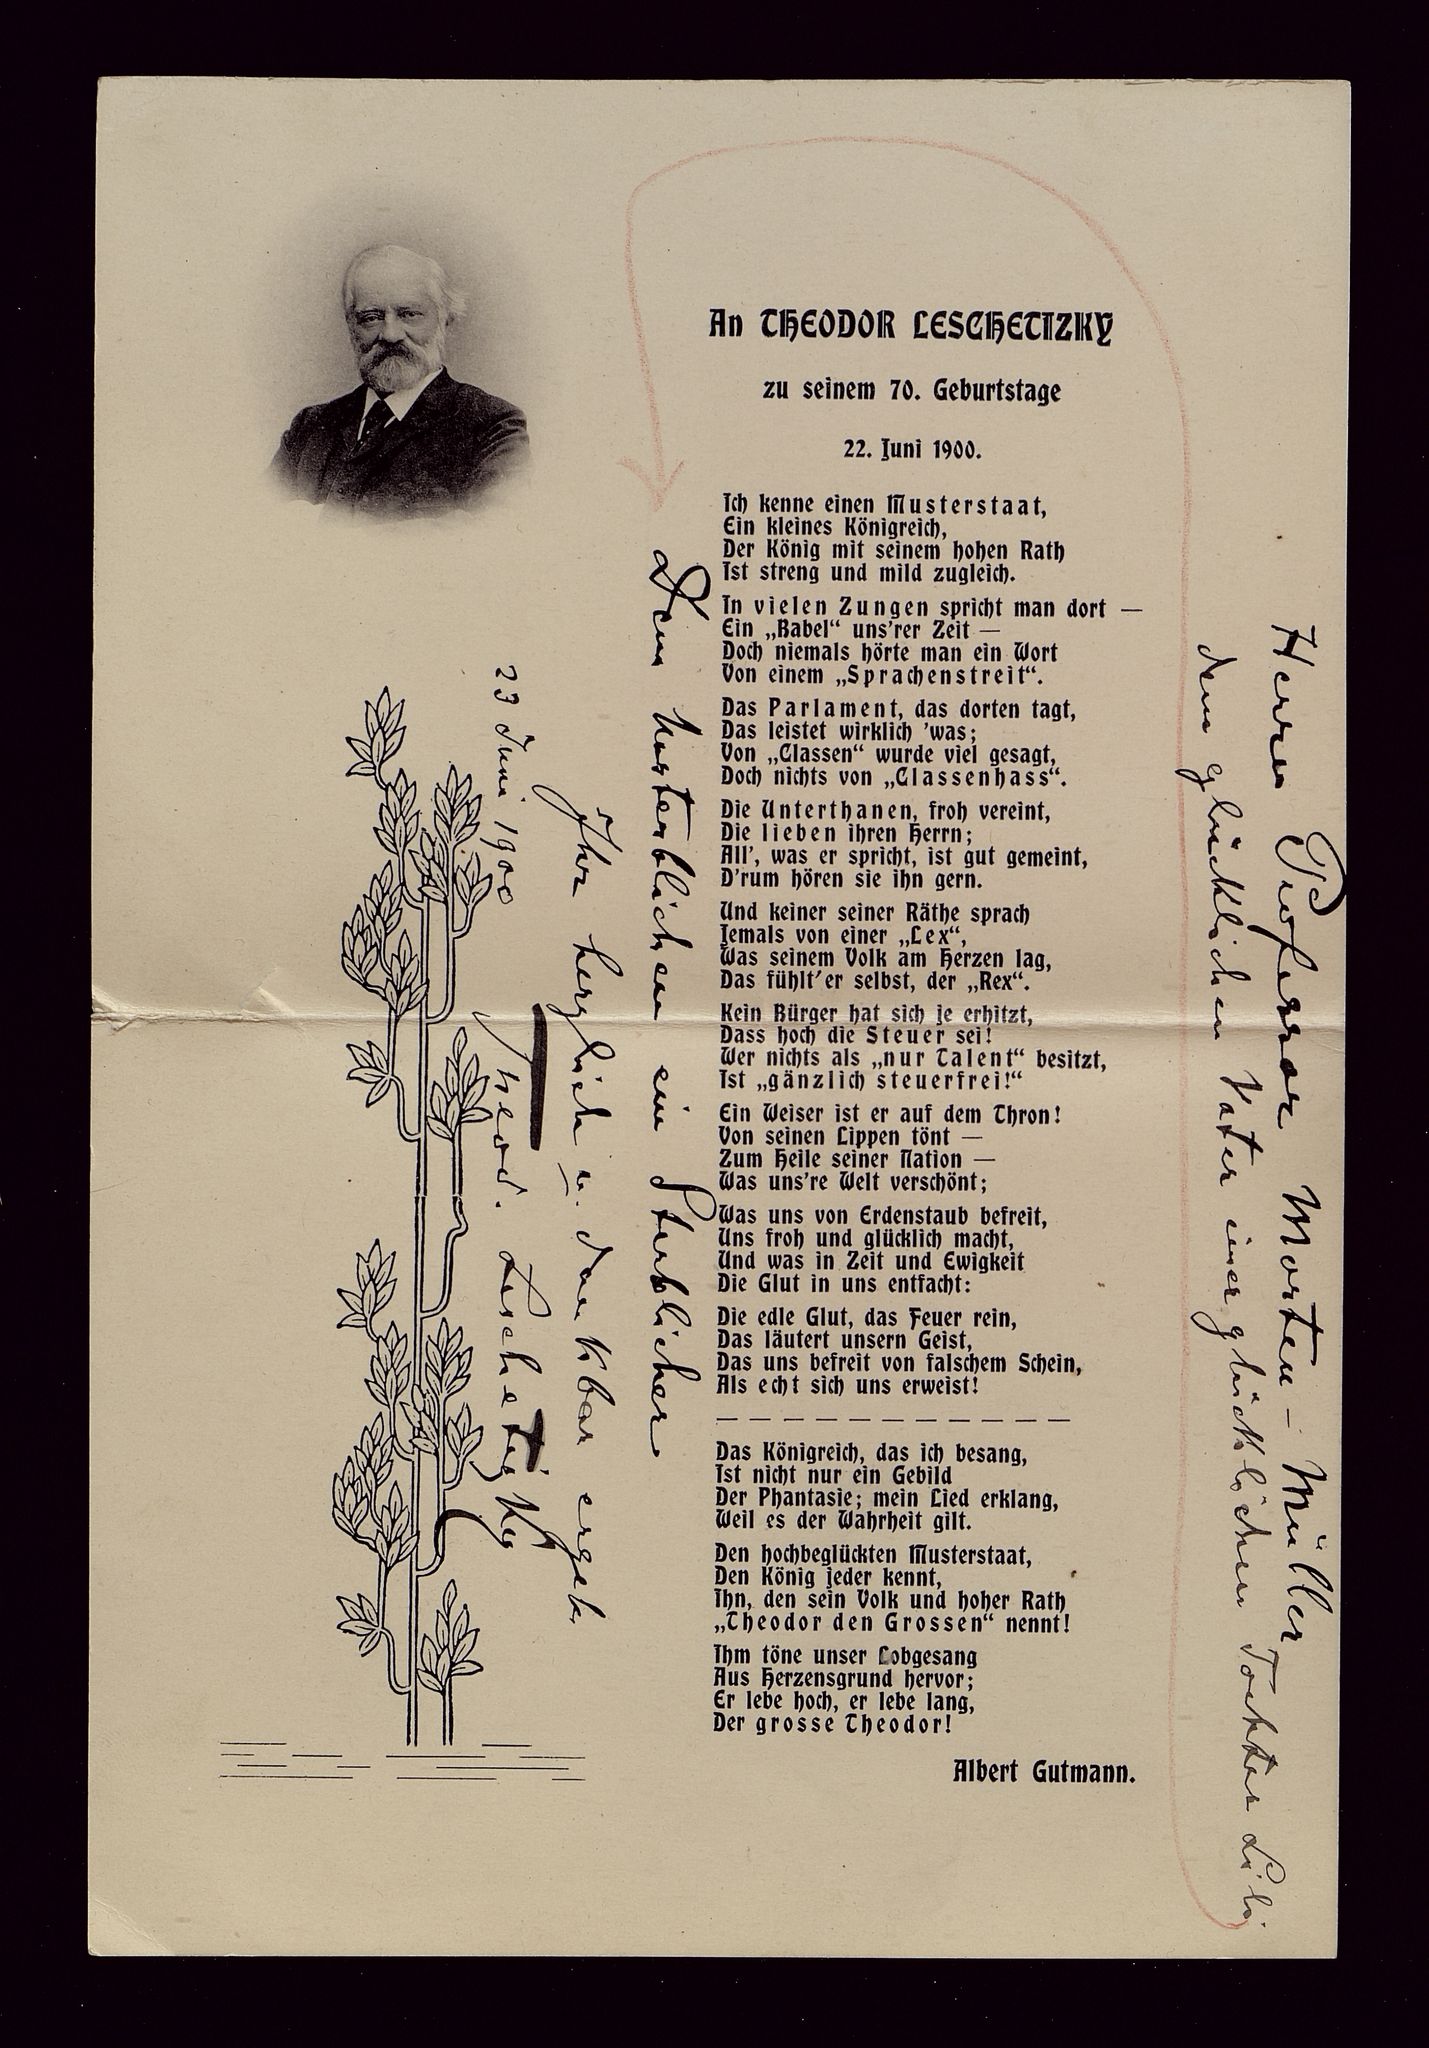 An THEODOR LESCHETIZKY
zu seinem 70. Geburtstage
22. Juni 1900.
Ich kenne einen Musterstaat,
Ein kleines Königreich,
Der König mit seinem hohen Rath
Ist streng und mild zugleich.
In vielen Zungen spricht man dort —
Ein „Babel“ uns'rer Zeit —
Doch niemals hörte man ein Wort
Von einem „Sprachenstreit“.
Das Parlament, das dorten tagt,
Das leistet wirklich 'was;
Von „Classen“ wurde viel gesagt,
Doch nichts von „Classenhass“.
Die Unterthanen, froh vereint,
Die lieben ihren Herrn;
All', was er spricht, ist gut gemeint,
D'rum hören sie ihn gern.
Und keiner seiner Räthe sprach
Jemals von einer „Lex“,
Was seinem Volk am Herzen lag,
Das fühlt'er selbst, der „Rex“.
Kein Bürger hat sich je erhitzt,
Dass hoch die Steuer sei!
Wer nichts als „nur Talent“ besitzt,
Ist „gänzlich steuerfrei!“
Ein Weiser ist er auf dem Thron!
Von seinen Lippen tönt —
Zum Heile seiner Nation —
Was uns're Welt verschönt;
Was uns von Erdenstaub befreit,
Uns froh und glücklich macht,
Und was in Zeit und Ewigkeit
Die Glut in uns entfacht:
Die edle Glut, das Feuer rein,
Das läutert unsern Geist,
Das uns befreit von falschem Schein,
Als echt sich uns erweist!
Das Königreich, das ich besang,
Ist nicht nur ein Gebild
Der Phantasie; mein Lied erklang,
Weil es der Wahrheit gilt.
Den hochbeglückten Musterstaat,
Den König jeder kennt,
Ihn, den sein Volk und hoher Rath
„Theodor den Grossen“ nennt!
Ihm töne unser Lobgesang
Aus Herzensgrund hervor;
Er lebe hoch, er lebe lang,
Der grosse Theodor!
Albert Gutmann.
Herrn Professor Morten-Müller
dem glücklichen Vater einer glücklichen Tochter Lili
Dem Unsterblichen ein Sterblicher
Ihr herzlich u. dankbar ergeb.
Theod. Leschetizky
23 Juni 1900